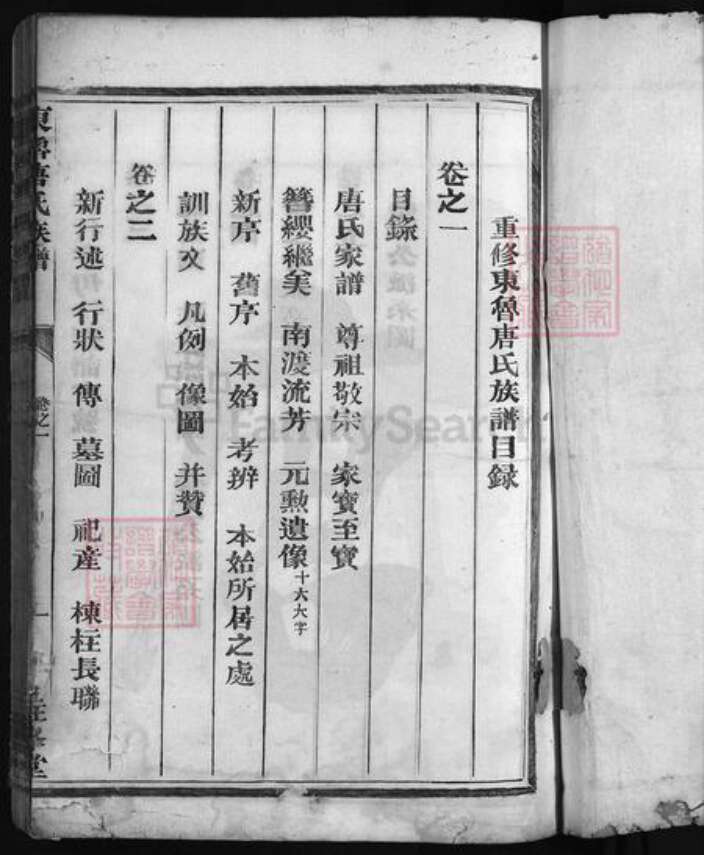 重修東魯唐氏族譜目録
卷之一
目錄
唐氏家譜 尊祖敬宗 家寶至寶
簪纓繼美 南渡流芳 元勲遺像 十大六字
新序 舊序 本始 考辨 本始所居之處
訓族文 凡例 像圖 并贊
卷之二
新行述 行狀 傳 墓圖 祀產 棟柱長聯
東魯唐氏族譜
卷之一
一
FamilySearch